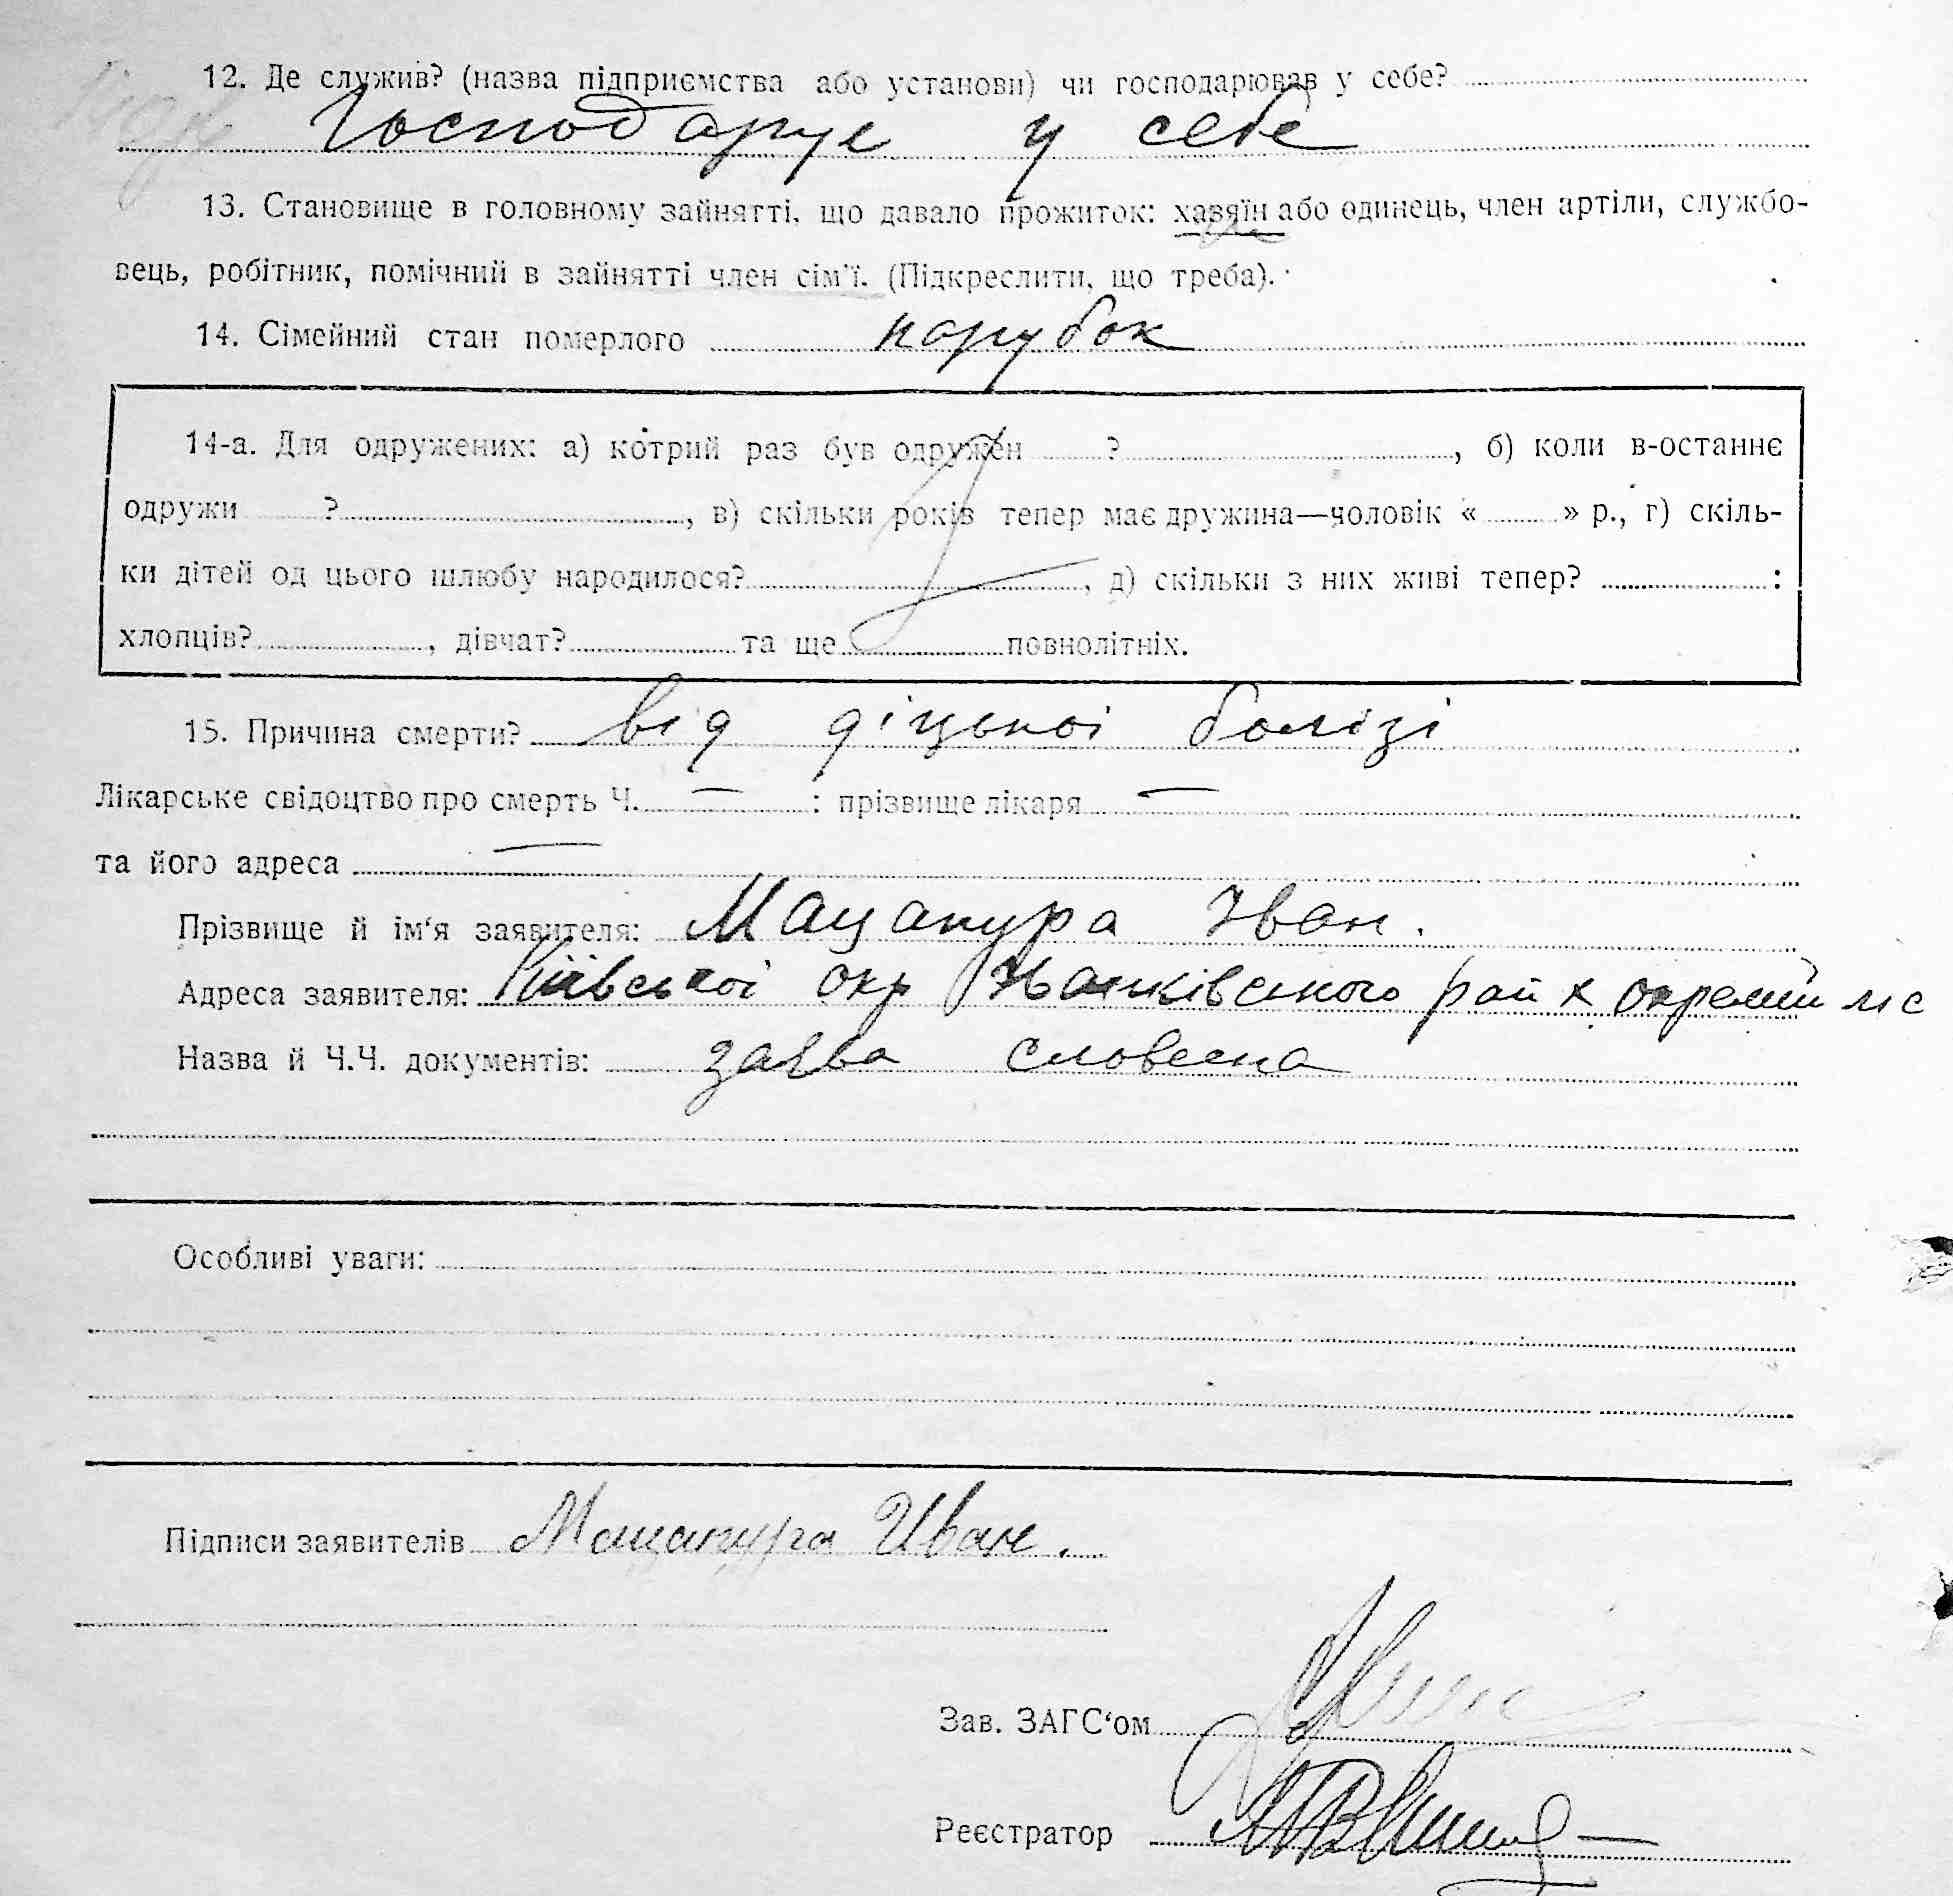 12. Де служив? (назва підприємства або установи) чи господарював у себе?
Господарує у себе
13. Становище в головному зайнятті, що давало прожиток: хазяїн або одинець, член артіли, службо-
вець, робітник, помічний в зайнятті член сім'ї. (Підкреслити, що треба).
14. Сімейний стан померлого парубок
14-а. Для одружених: а) котрий раз був одружен ?, б) коли в-останнє
одружи ?, в) скільки років тепер має дружина—чоловік « » р., г) скіль-
ки дітей од цього шлюбу народилося?, д) скільки з них живі тепер? :
хлопців?, дівчат? та ще повнолітніх.
15. Причина смерти? від діцької болізі
Лікарське свідоцтво про смерть Ч. — : прізвище лікаря —
та його адреса —
Прізвище й ім'я заявителя: Мацапура Іван.
Адреса заявителя: Київської окр Іванківського рай х окремий ліс
Назва й Ч.Ч. документів: заява словесна
Особливі уваги:
Підписи заявителів Мацапура Иван.
Зав. ЗАГС'ом
Реєстратор